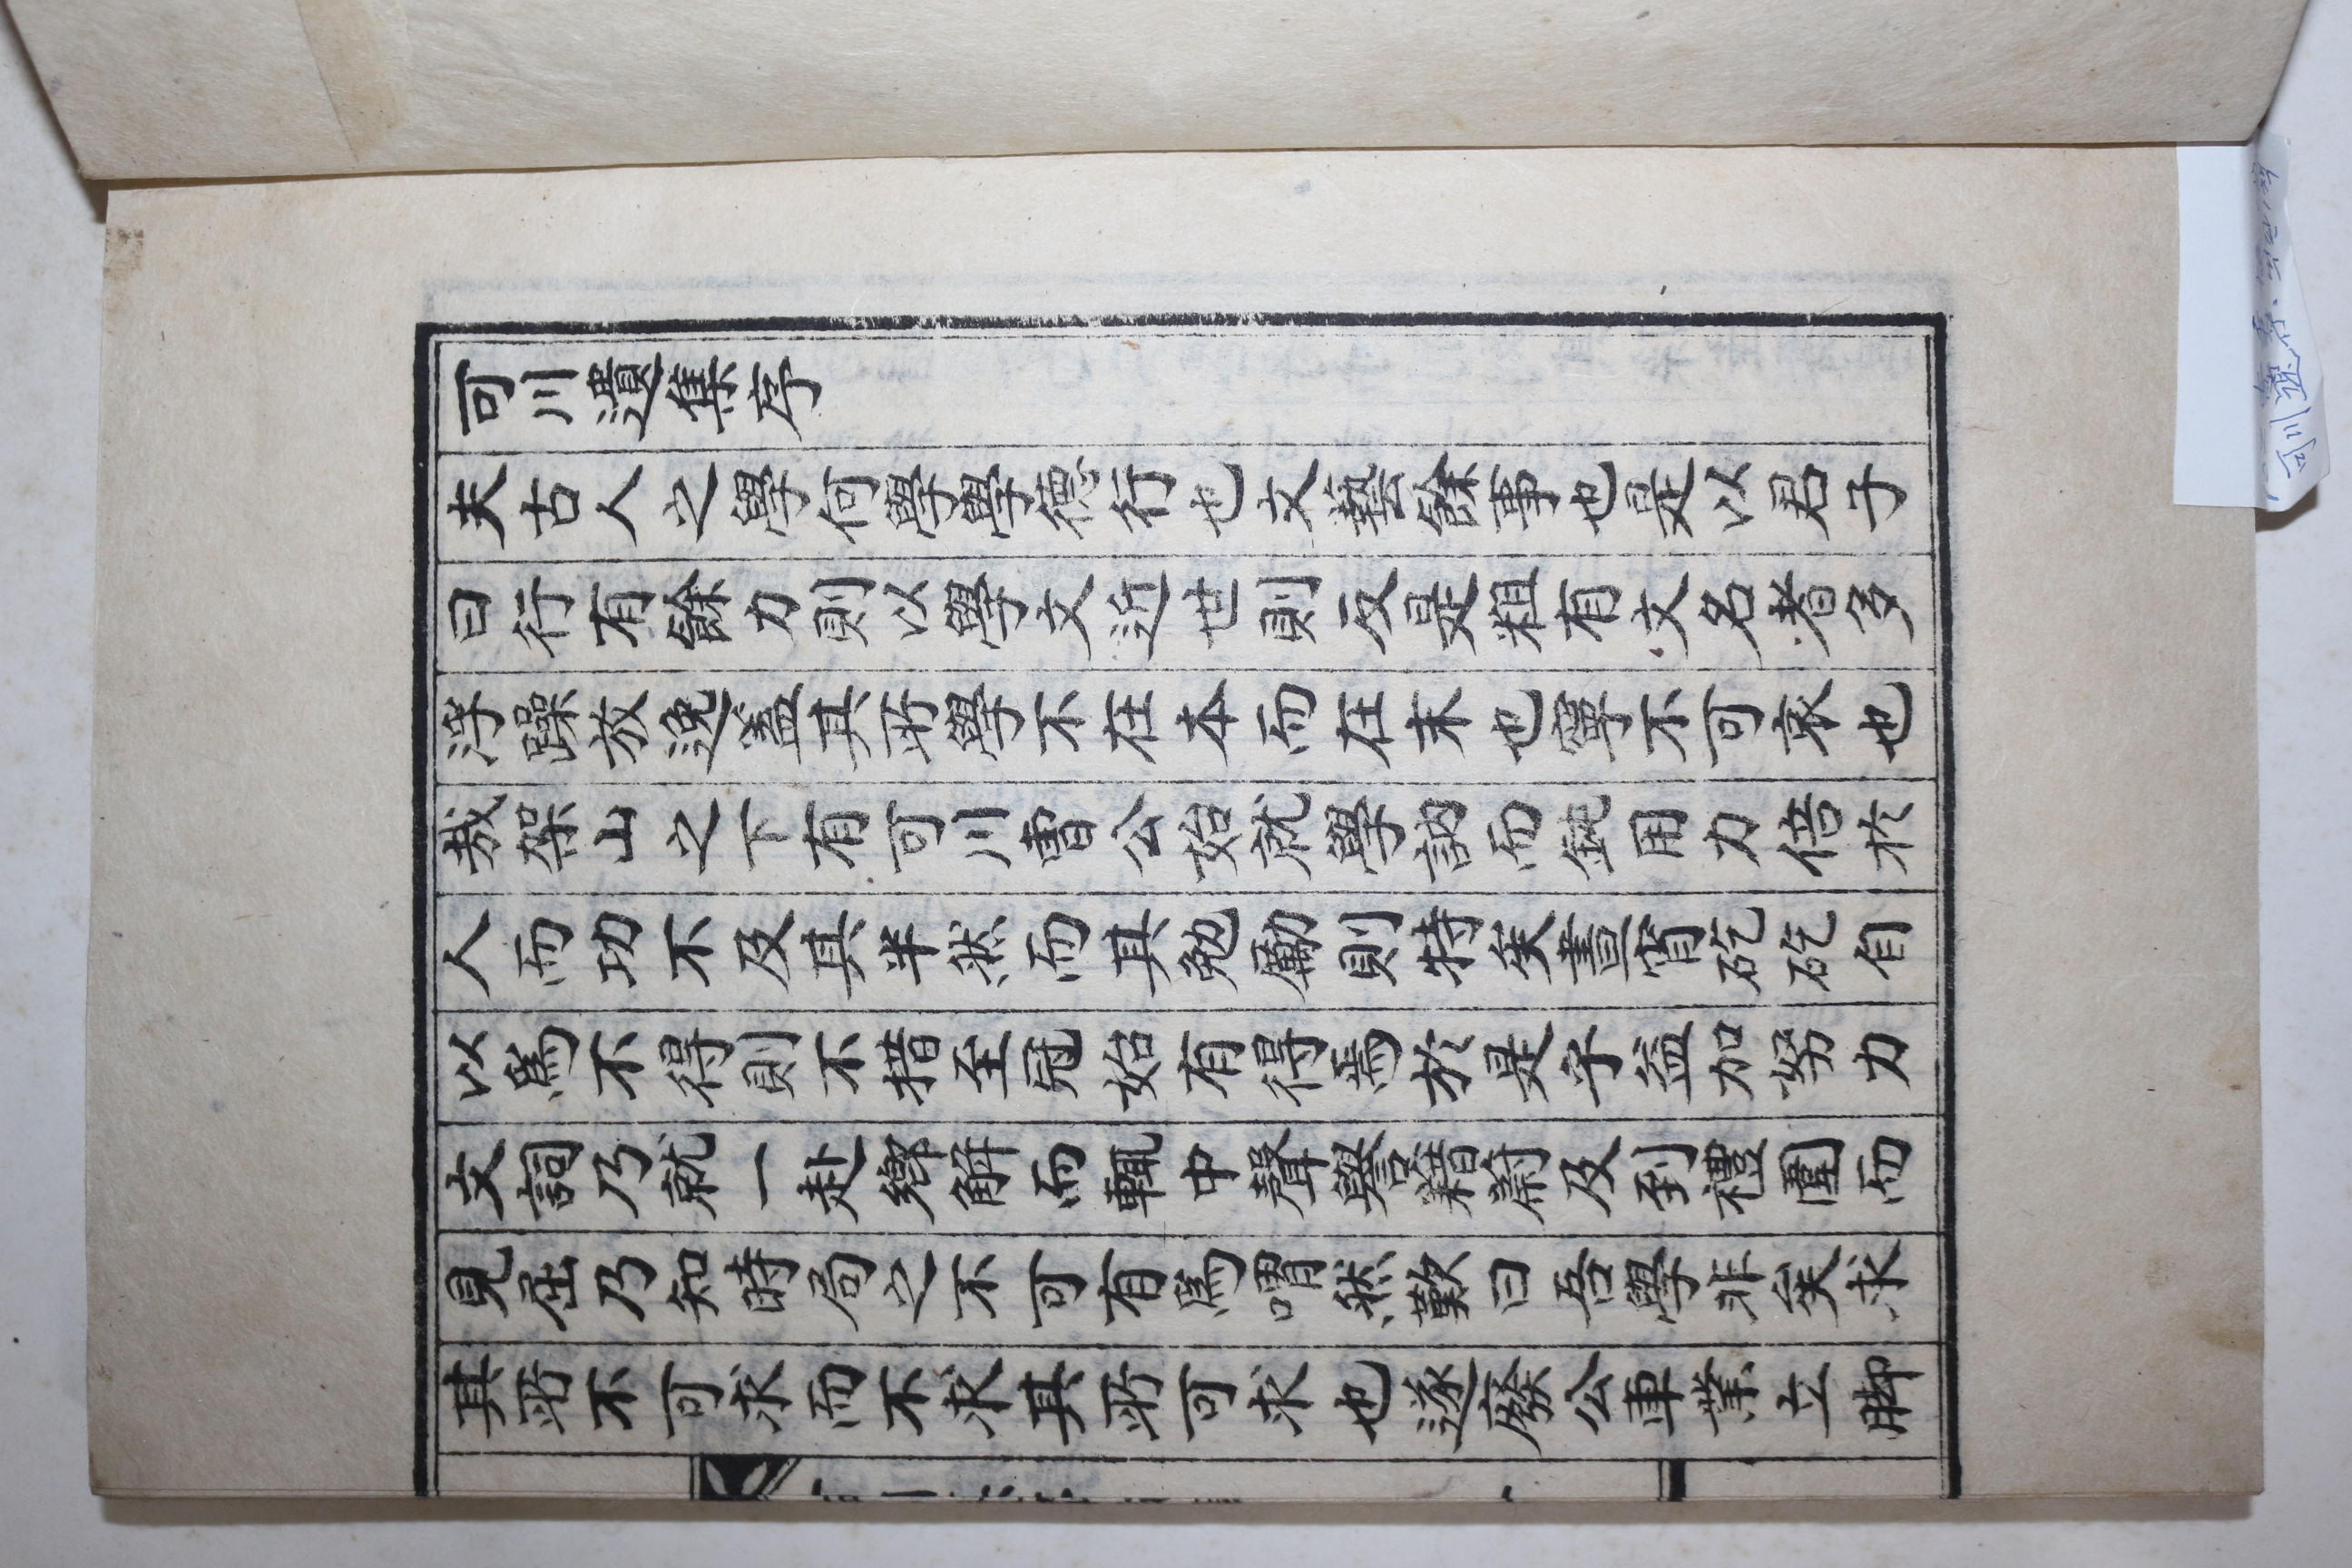 可川遺集序
夫古人之學何學學德行也文藝餘事也是以君子
曰行有餘力則以學文近世則反是粗有文名者多
浮躁放逸蓋其所學不在本而在末也寧不可哀也
哉架山之下有可川曺公始就學訥而鈍用力倍於
人而功不及其半然而其勉勵則特矣晝宵矻矻自
以爲不得則不措至冠始有得焉於是乎益加努力
文詞乃就一赴鄕解而輒中聲譽藉蔚及到禮圍而
見屈乃知時局之不可有爲喟然歎曰吾學非矣求
其所不可求而不求其所可求也遂廢公車業立脚
可川遺